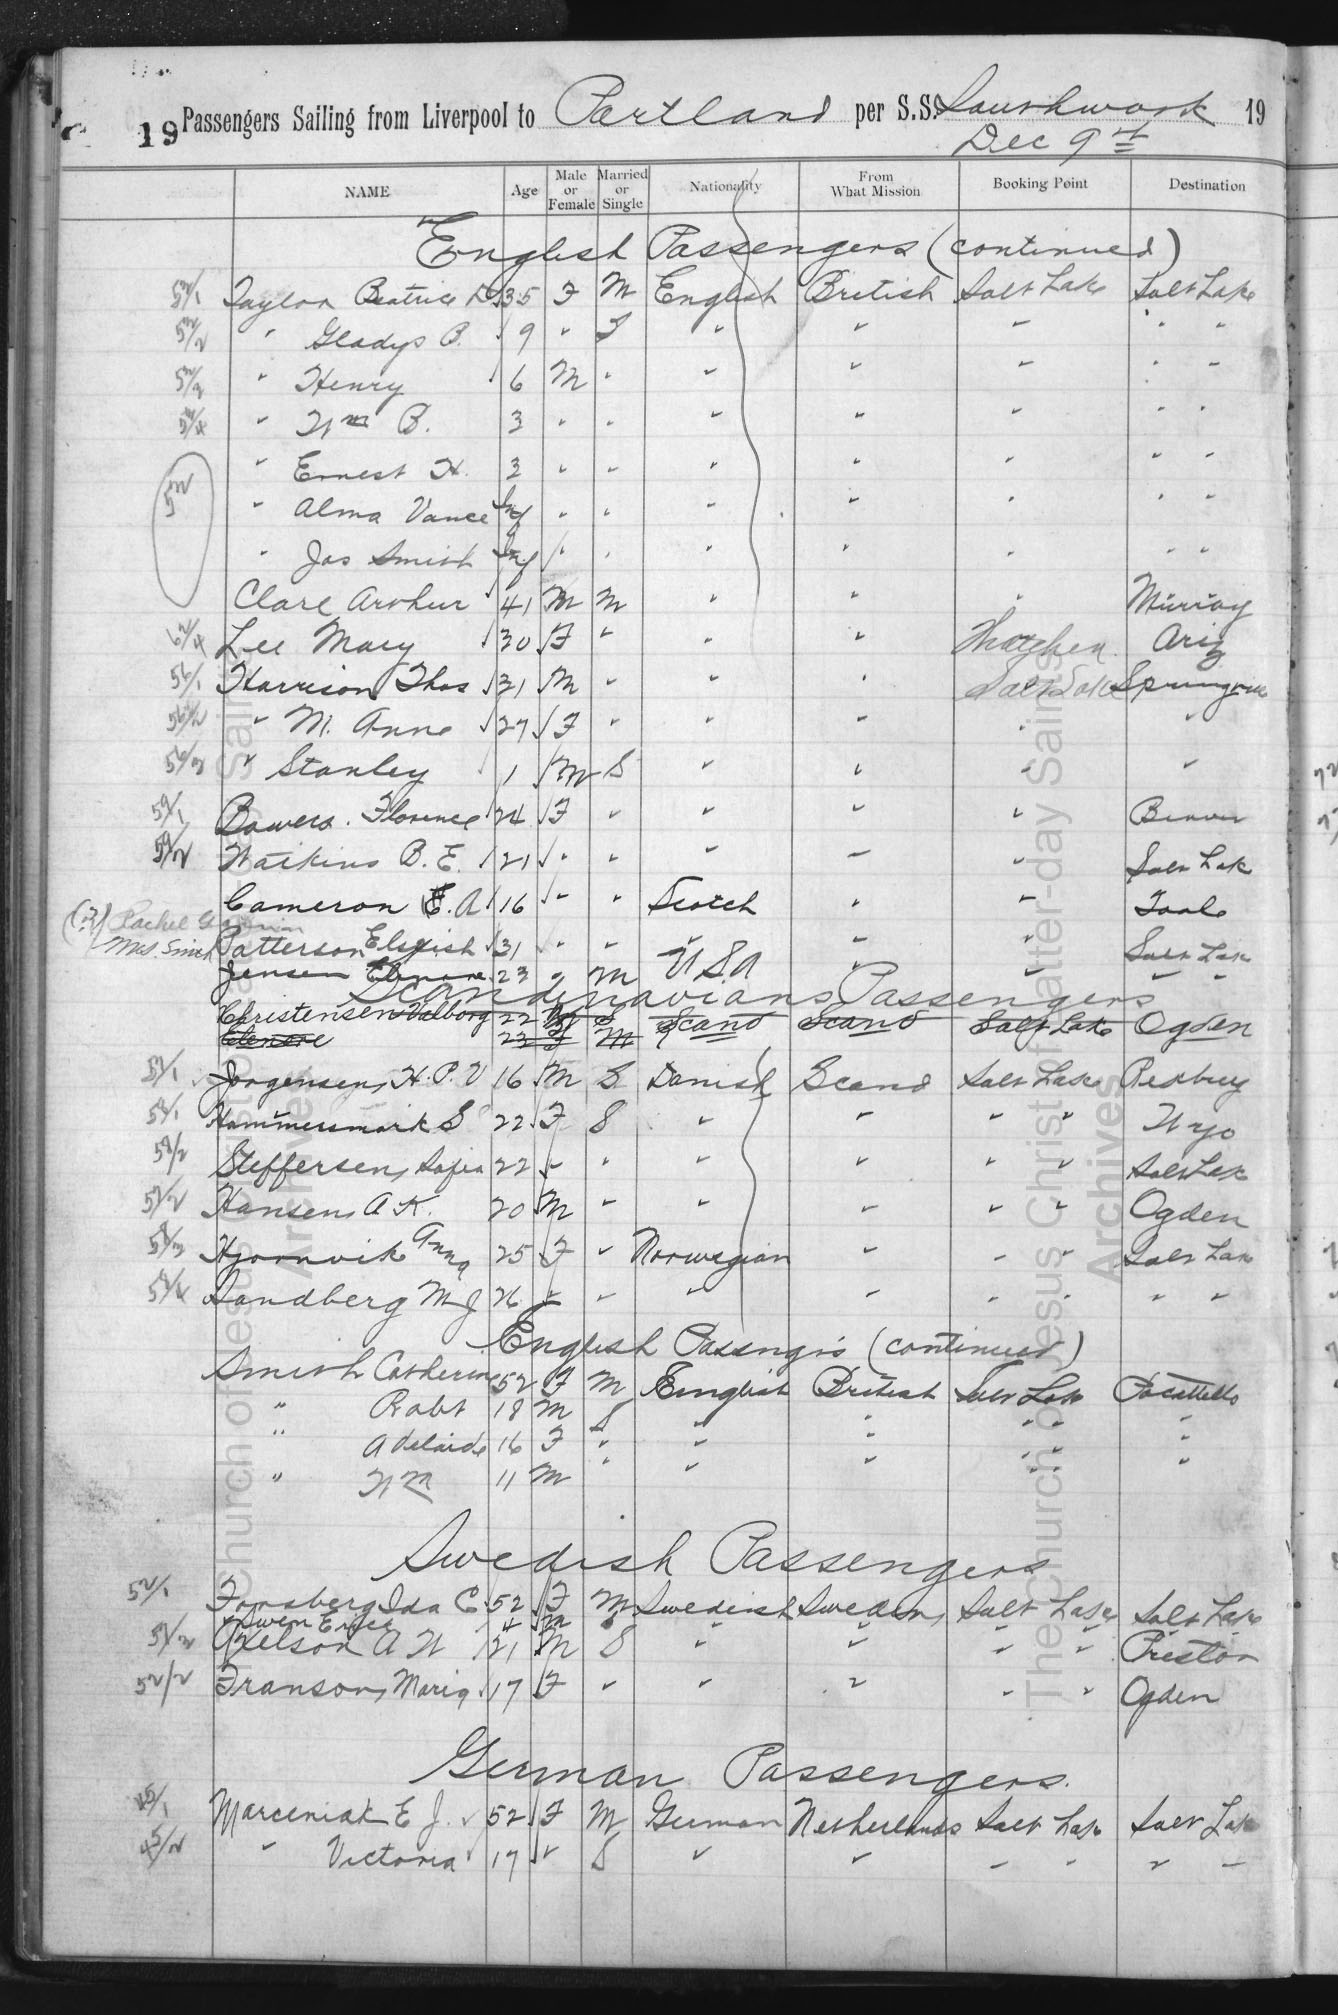 19 Passengers Sailing from Liverpool to Portland per S.S. Southwark 19
Dec 9th
NAME Age Male or Female Married or Single Nationality From What Mission Booking Point Destination
English Passengers (continued)
52/1 Taylor Beatrice D 35 F M English British Salt Lake Salt Lake
52/2 " Gladys B. 9 " S " " " " "
52/3 " Henry 6 M " " " " " "
52/4 " Wm B. 3 " " " " " " "
" Ernest H. 3 " " " " " " "
52 " Alma Vance Inf " " " " " " "
" Jas Smith Inf " " " " " " "
Clare Arthur 41 M M " " " Murray
62/4 Lee Mary 30 F " " " Thatcher Ariz
56/1 Harrison Thos 31 M " " " Salt Lake Springville
56/2 " M. Anne 27 F " " " " "
56/3 " Stanley 1 M S " " " "
59/1 Bowers. Florence 24 F " " " " Beaver
59/2 Watkins B. E. 21 " " " " " Salt Lake
Cameron E. A 16 " " Scotch " " Tooele
(?) Rachel
Mrs. Smith Patterson Elspish 31 " " " " " Salt Lake
Jensen Elenore 23 " M U S A " " " "
Scandinavians Passengers
Christensen Valborg 22 F S Scand Scand Salt Lake Ogden
Elenore 23 F M
57/1 Jorgensen, H. P. V 16 M S Danish Scand Salt Lake Redbury
58/1 Hammersmark S 22 F S " " " " Wyo
58/2 Steffersen, Sofia 22 " " " " " " Salt Lake
57/2 Hansen, A K. 20 M " " " " " Ogden
58/3 Hjornvik Anna 25 F " Norwegian " " " Salt Lake
58/4 Sandberg M J 26 " " " " " " " "
English Passengrs (continued)
Smith Catherine 52 F M English British Salt Lake Pocattello
" Robt 18 M S " " " " "
" Adelaide 16 F " " " " " "
" Wm 11 M " " " " " "
Swedish Passengers
52/1 Forsberg Ida C. 52 F M Swedish Sweden, Salt Lake Salt Lake
Swen 4 M " " " " " " "
51/2 Axelson A W 21 M S " " " " Preston
52/2 Franson, Maria 17 F " " " " " Ogden
German Passengers.
45/1 Marceniak E J. 52 F M German Netherlands Salt Lake Salt Lake
45/2 " Victoria 17 " S " " " " " "
The Church of Jesus Christ of Latter-day Saints
Archives
The Church of Jesus Christ of Latter-day Saints
Archives